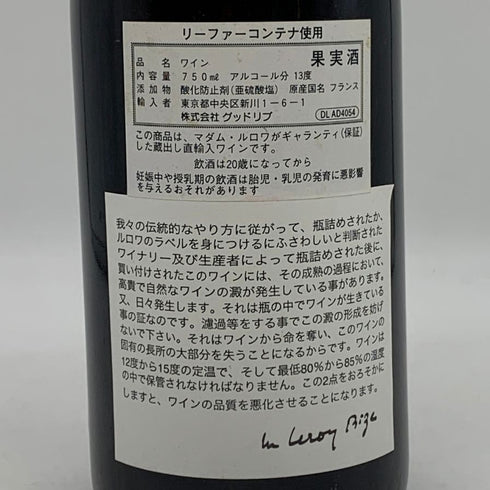 リーファーコンテナ使用
品名 ワイン 果実酒
内容量 750㎖ アルコール分 13度
添加物 酸化防止剤(亜硫酸塩) 原産国名 フランス
輸入者 東京都中央区新川1-6-1
株式会社 グッドリブ DL AD4054
この商品は、マダム・ルロワがギャランティ(保証)
した蔵出し直輸入ワインです。
飲酒は20歳になってから
妊娠中や授乳期の飲酒は胎児・乳児の発育に悪影響
を与えるおそれがあります
我々の伝統的なやり方に従がって、瓶詰めされたか、
ルロワのラベルを身につけるにふさわしいと判断された
ワイナリー及び生産者によって瓶詰めされた後に、
買い付けされたこのワインには、その成熟の過程において、
高貴で自然なワインの澱が発生している事があります。
又、日々発生します。それは瓶の中でワインが生きている
事の証なのです。濾過等をする事でこの澱の形成を妨げ
ないで下さい。それはワインから命を奪い、このワインの
固有の長所の大部分を失うことになるからです。ワインは
12度から15度の定温で、そして最低80%から85%の湿度
の中で保管されなければなりません。この2点をおろそかに
しますと、ワインの品質を悪化させることになります。
Leroy Bize